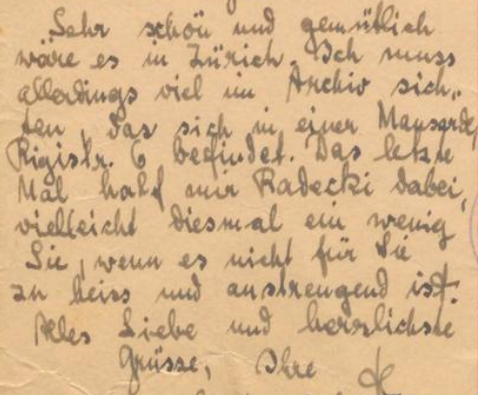 Sehr schön und gemütlich
wäre es in Zürich. Ich muss
allerdings viel im Archiv sich-
ten, das sich in einer Mansarde,
Rigistr. 6 befindet. Das letzte
Mal half mir Radecki dabei,
vielleicht diesmal ein wenig
Sie, wenn es nicht für Sie
zu heiss und anstrengend ist.
Alles Liebe und herzlichste
Grüsse, Ihre